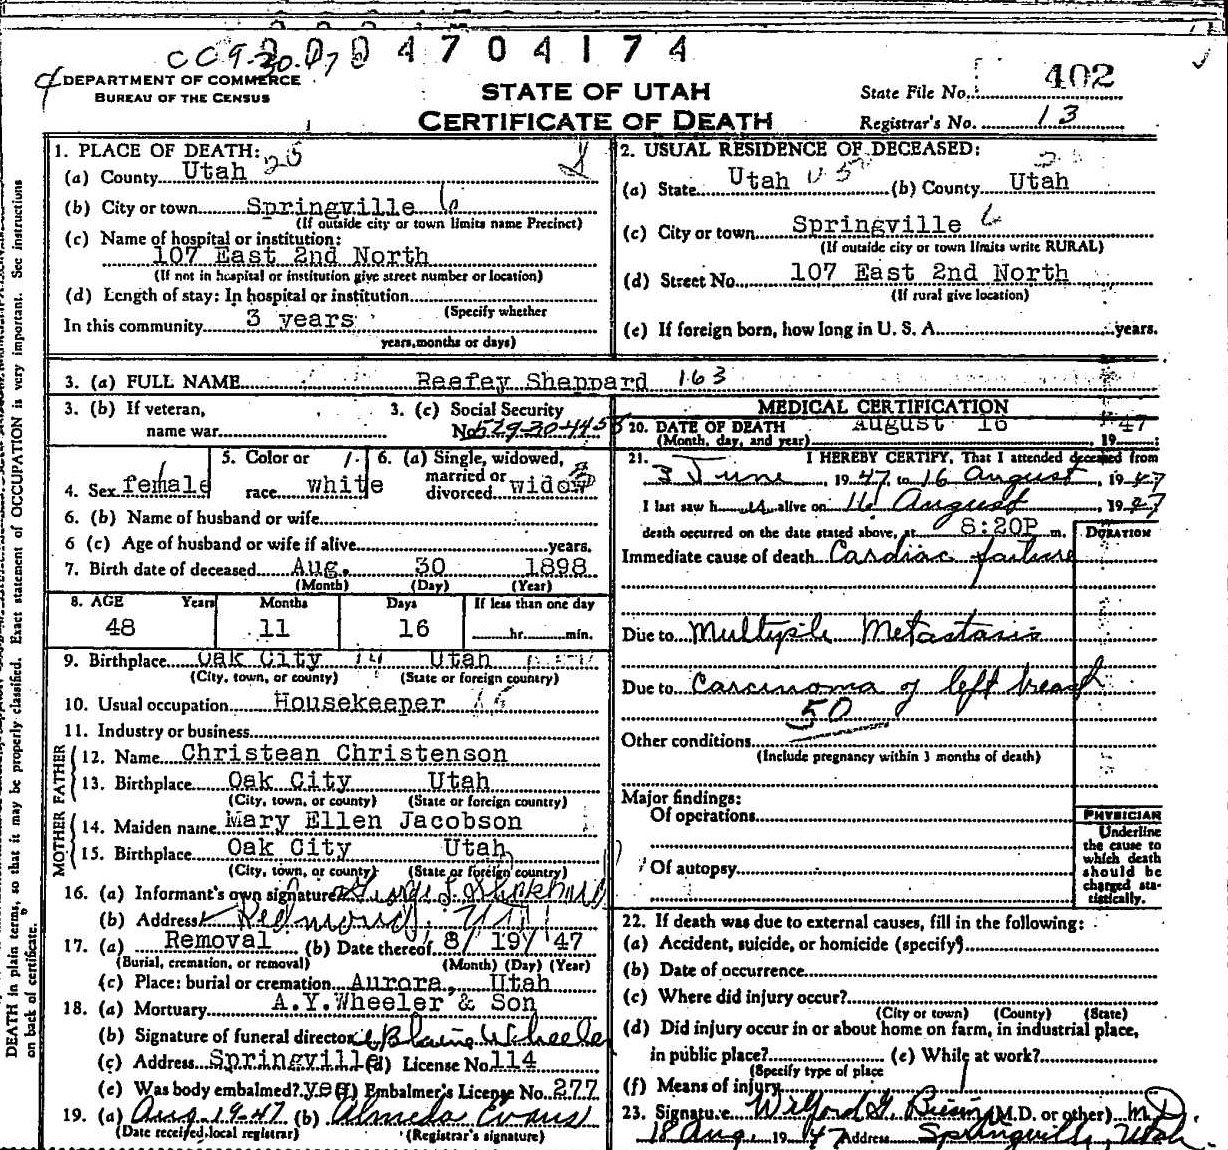 CC 9-30-07 0004704174
DEPARTMENT OF COMMERCE
BUREAU OF THE CENSUS
STATE OF UTAH
CERTIFICATE OF DEATH
State File No. 402
Registrar's No. 13
DEATH in plain terms, so that it may be properly classified. Exact statement of OCCUPATION is very important. See instructions
on back of certificate.
1. PLACE OF DEATH: 25
(a) County Utah
(b) City or town Springville 6
(If outside city or town limits name Precinct)
(c) Name of hospital or institution:
107 East 2nd North
(If not in hospital or institution give street number or location)
(d) Length of stay: In hospital or institution
(Specify whether
In this community 3 years
years, months or days)
2. USUAL RESIDENCE OF DECEASED:
(a) State Utah (b) County Utah
(c) City or town Springville 6
(If outside city or town limits write RURAL)
(d) Street No. 107 East 2nd North
(If rural give location)
(e) If foreign born, how long in U. S. A. years.
3. (a) FULL NAME Reefey Sheppard 163
3. (b) If veteran,
name war
3. (c) Social Security
No. 529-30-4458
4. Sex female
5. Color or
race white
6. (a) Single, widowed,
married or
divorced widow
6. (b) Name of husband or wife
6 (c) Age of husband or wife if alive years.
7. Birth date of deceased Aug. 30 1898
(Month) (Day) (Year)
8. AGE Years Months Days If less than one day
48 11 16 hr. min.
9. Birthplace Oak City 14 Utah
(City, town, or county) (State or foreign country)
10. Usual occupation Housekeeper
11. Industry or business
FATHER
12. Name Christean Christenson
13. Birthplace Oak City Utah
(City, town, or county) (State or foreign country)
MOTHER
14. Maiden name Mary Ellen Jacobson
15. Birthplace Oak City Utah
(City, town, or county) (State or foreign country)
16. (a) Informant's own signature George
(b) Address Redmond, Utah
17. (a) Removal (b) Date thereof 8/ 19/ '47
(Burial, cremation, or removal) (Month) (Day) (Year)
(c) Place: burial or cremation Aurora, Utah
18. (a) Mortuary A.Y.Wheeler & Son
(b) Signature of funeral director Blaine Wheeler
(c) Address Springville (d) License No. 114
(e) Was body embalmed? yes (f) Embalmer's License No. 277
19. (a) Aug-19-47 (b) Almeda Evans
(Date received, local registrar) (Registrar's signature)
MEDICAL CERTIFICATION
20. DATE OF DEATH August 16
(Month, day, and year) 19 47 ;
21. I HEREBY CERTIFY, That I attended deceased from
3 June, 19 47, to 16 August, 19 47
I last saw h er alive on 16 August, 19 47
death occurred on the date stated above, at 8:20P m. DURATION
Immediate cause of death Cardiac failure
Due to Multiple Metastasis
Due to Carcinoma of left breast
50
Other conditions
(Include pregnancy within 3 months of death)
Major findings:
Of operations
Of autopsy
PHYSICIAN
Underline
the cause to
which death
should be
charged sta-
tistically.
22. If death was due to external causes, fill in the following:
(a) Accident, suicide, or homicide (specify)
(b) Date of occurrence
(c) Where did injury occur?
(City or town) (County) (State)
(d) Did injury occur in or about home on farm, in industrial place,
in public place? (e) While at work?
(Specify type of place
(f) Means of injury
23. Signature Wilford G. (M.D. or other) M.D.
18 Aug. 19 47 Address Springville, Utah.